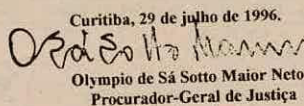 Curitiba, 29 de julho de 1996.
Olympio de Sá Sotto Maior Neto
Procurador-Geral de Justiça